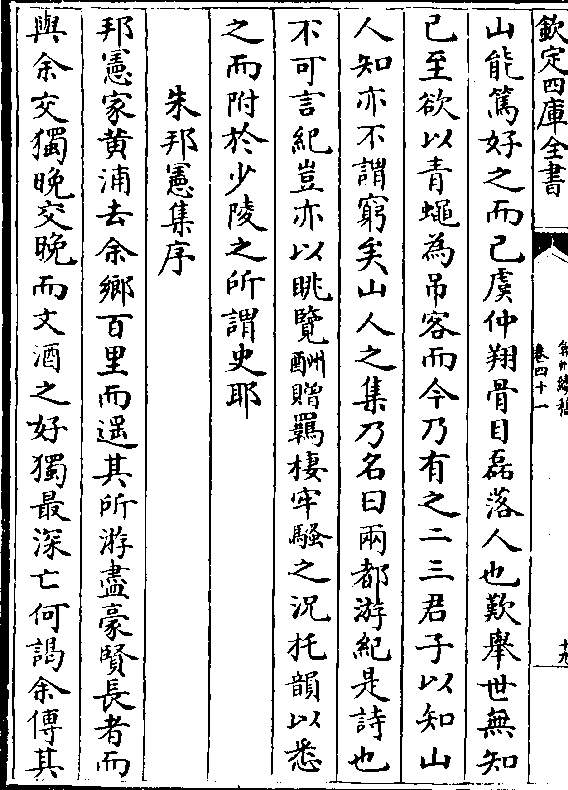 欽定四庫全書
弇州續稿
卷四十一
山能篤好之而已虞仲翔骨目磊落人也歎舉世無知
已至欲以青蠅為吊客而今乃有之二三君子以知山
人知亦不謂窮矣山人之集乃名曰兩都游紀是詩也
不可言紀豈亦以眺覽酬贈羈棲牢騷之況托韻以悉
之而附於少陵之所謂史耶
朱邦憲集序
邦憲家黄浦去余鄉百里而遥其所游盡豪賢長者而
與余交獨晚交晚而文酒之好獨最深亡何謁余傳其